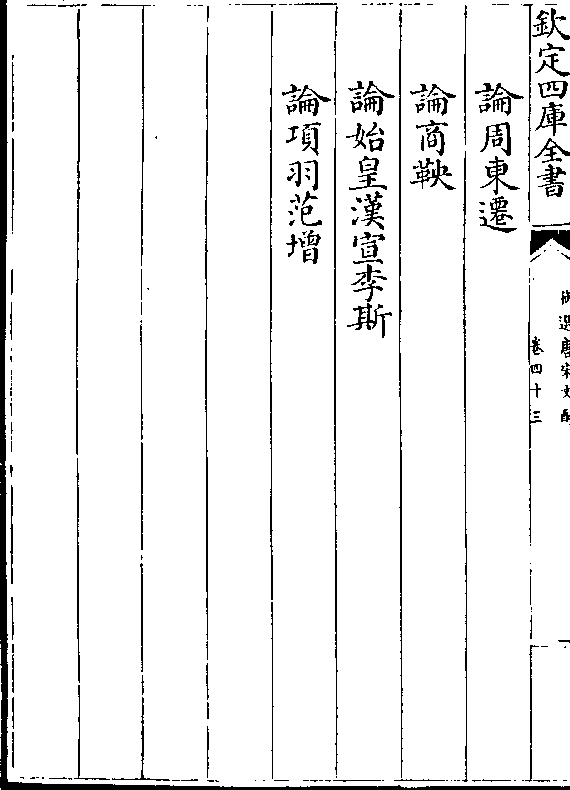 欽定四庫全書
御選唐宋文醇
卷四十三
論周東遷
論商鞅
論始皇漢宣李斯
論項羽范增